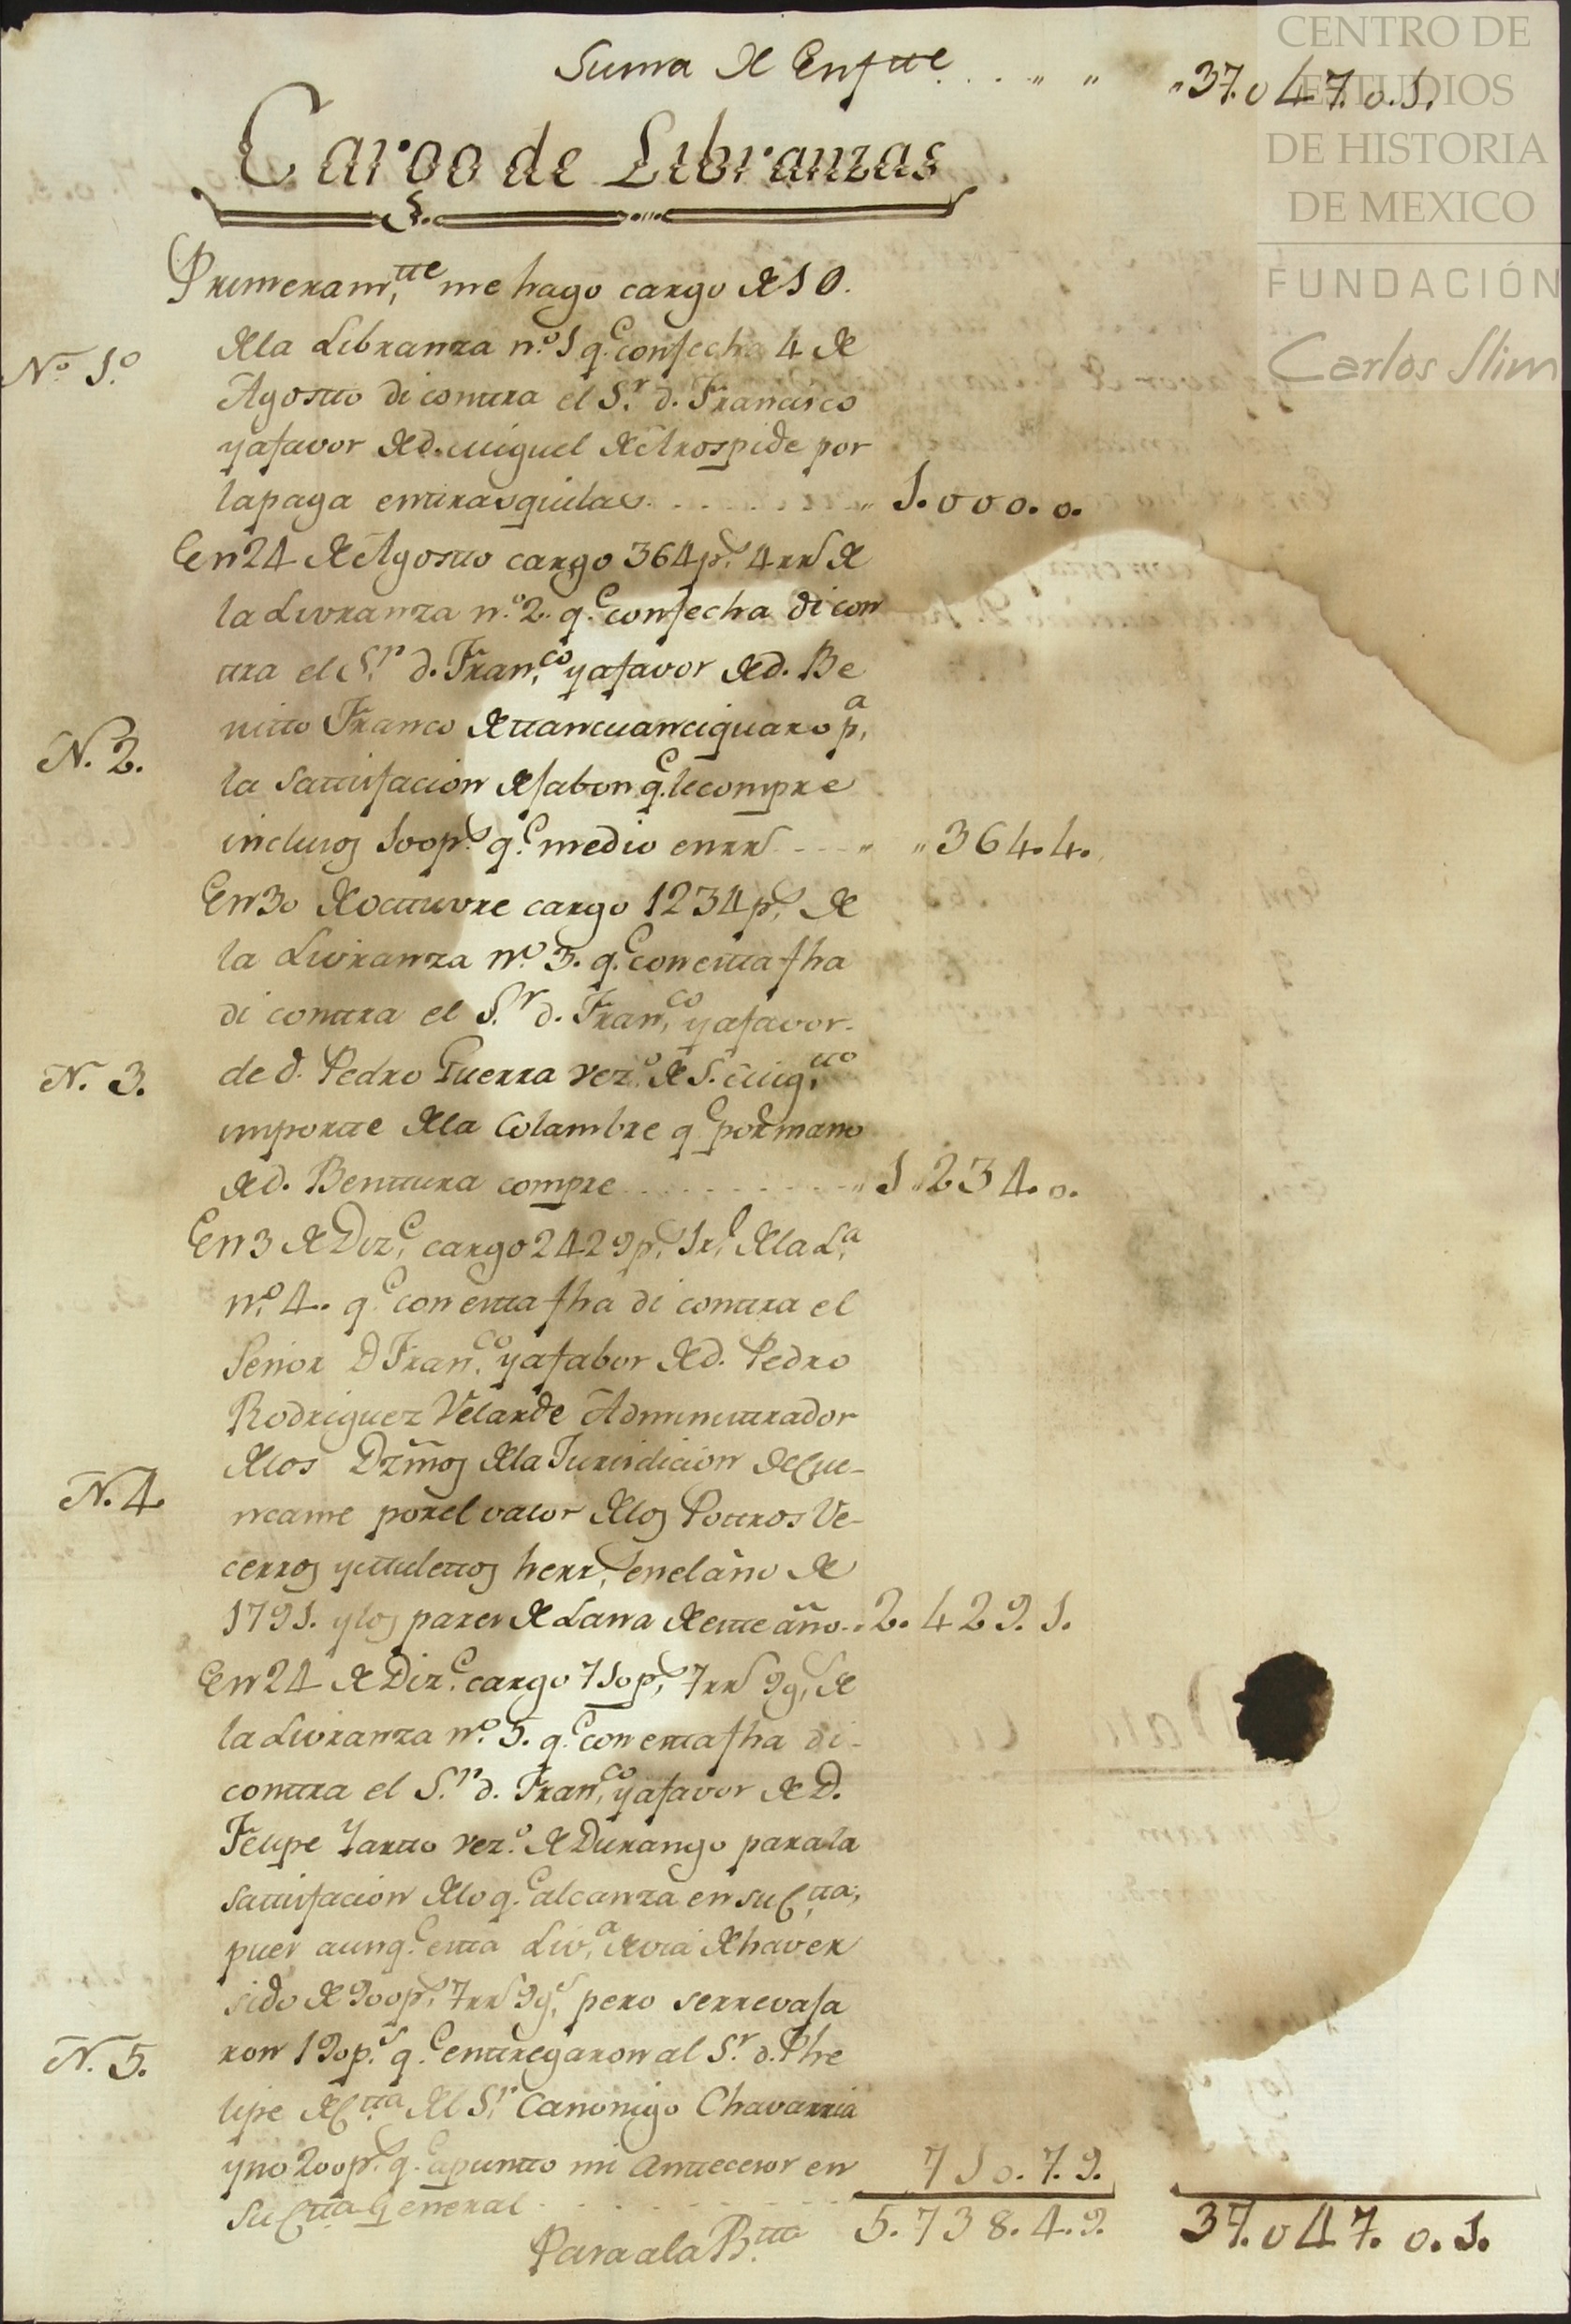 Suma de Enfte . . . " " "37.047.0.1.
CENTRO DE
ESTUDIOS
DE HISTORIA
DE MEXICO
FUNDACIÓN
Carlos Slim
Cargo de Libranzas
Primeram.tte me hago cargo de 1 0.
dela Libranza n.o 1 q.e con fecha 4 de
No. 1.o
Agostto di conttra el S.r d. Francisco
y a favor de d. Miguel de Arospide por
la paga en ttrasquilas. . . . . . . " 1.000.0.
En 24 de Agostto cargo 364 p.s 4 rr.s de
la Livranza n.o 2. q.e con fecha di con
ttra el S.r d. Fran.co y a favor de d. Be
nitto Franco de ttancuanciguaro p.a
N. 2.
la sattisfacion de jabon q.e le compre
inclusos 100 p.s q.e me dio en rr.s - - - " "364.4.
En 30 de Octtuvre cargo 1234 p.s de
la Livranza n.o 3. q.e con estta fha
di conttra el S.r d. Fran.co y a favor.
de d. Pedro Guerra vez.o de S. Mig.
N. 3.
importte dela Colambre q.e por mano
de d. Benttura compre . . . . . . . " 1"234.0.
En 3 de Diz.e cargo 2429 p.s 1 r.l de la L.a
n.o 4. q.e con estta fha di conttra el
Senor D Fran.co y a fabor de d. Pedro
Rodriguez Velarde Administtrador
delos Dzmos dela Jurisdicion de Cue-
N. 4.
ncame por el valor delos Pottros Ve-
cerros y Mulettos herr.s en el año de
1791. y los pares de Lana de estte año.. 2.429.1.
En 24 de Diz.e cargo 710 p.s 7 rr.s 9 g.s de
la Livranza n.o 5. q.e con estta fha di-
conttra el S.r d. Fran.co y a favor de D.
Felipe Yartto vez.o de Durango para la
sattisfacion delo q.e alcanza en su C.tta,
pues aunq.e estta Liv.a devia de haver
sido de 900 p.s 7 rr.s 9 g.s pero se rrevaja
ron 190 p.s q.e enttregaron al S.r d. Phe
N. 5.
lipe de C.tta del S.r Canonigo Chavarria
y no 200 p.s q.e apuntto mi Anttecesor en 710.7.9.
su C.tta General . . . . . . . 5.738.4.9. 37.047.0.1.
Para a la B.tta